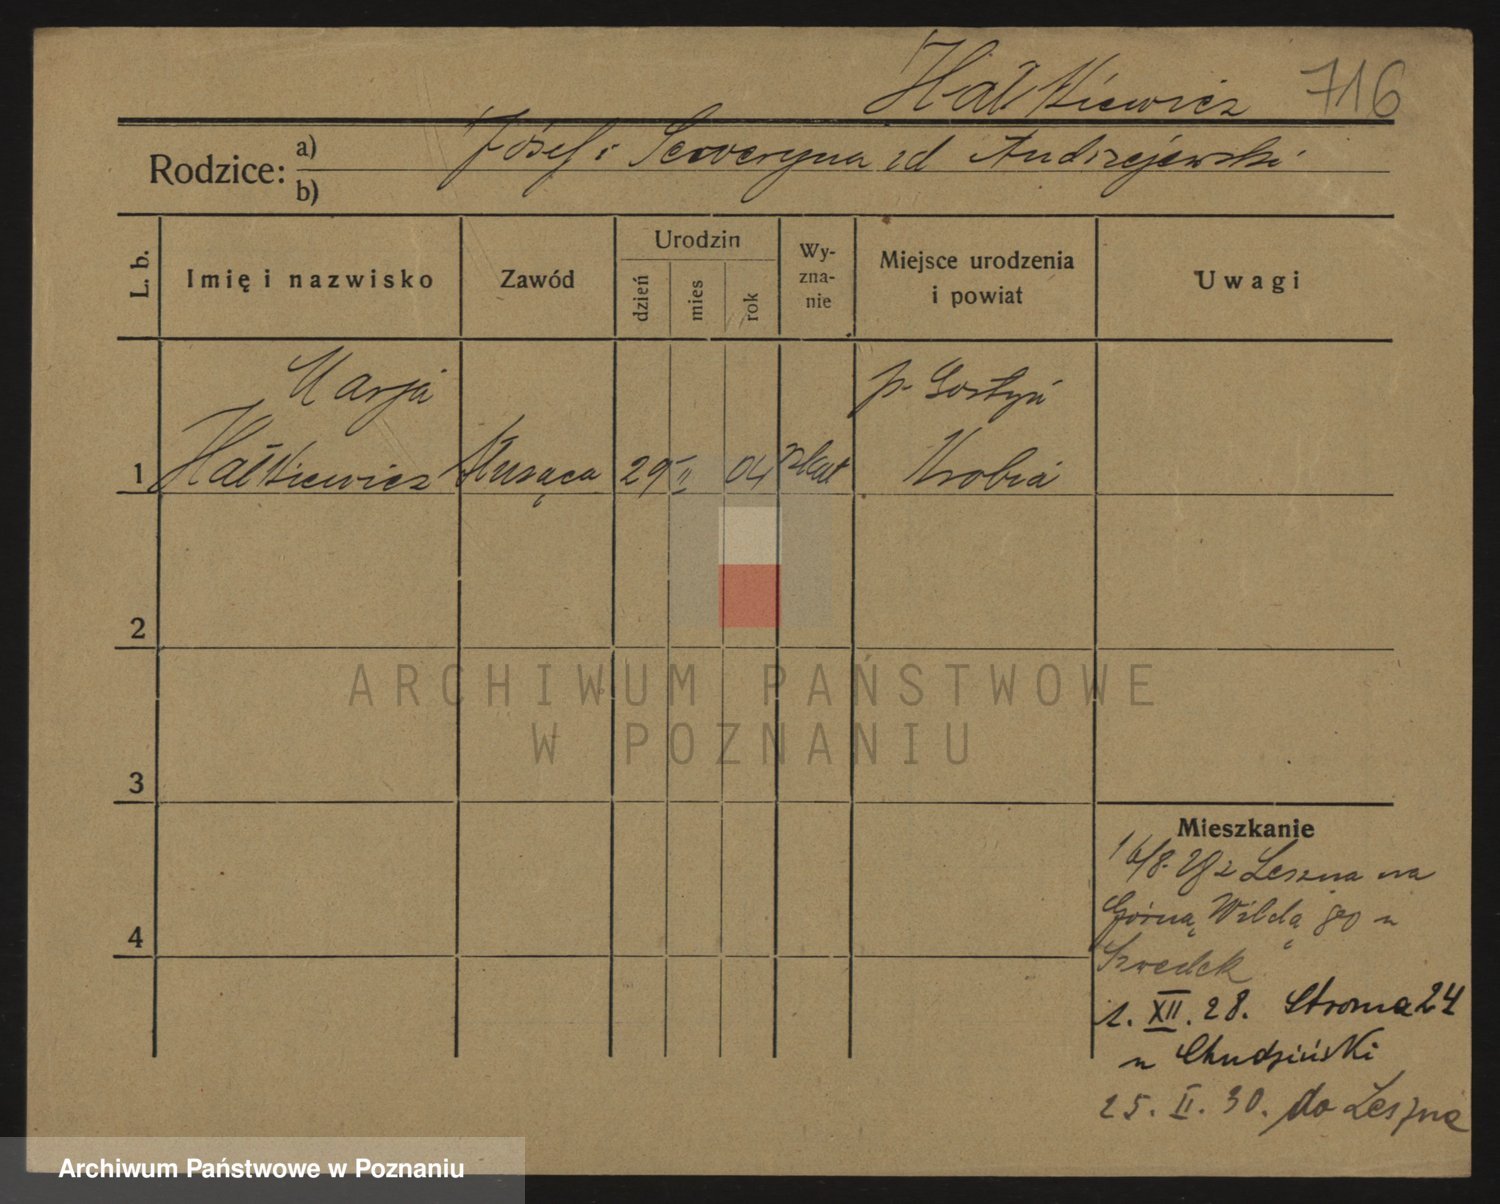 Hałkiewicz 716
Rodzice: a) Józef i Seweryna zd Andrzejewski
b)
L. b. Imię i nazwisko Zawód Urodzin dzień mies rok Wy-zna-nie Miejsce urodzenia i powiat Uwagi
Marja p. Gostyń
1 Hałkiewicz Służąca 29 II 04 rzkat Krobia
2
3
4
Mieszkanie
16/8. 28 z Leszna na
Górną Wildą 80 u
Szwedek
1. XII. 28. Stroma 24
u Chudziński
25. II. 30. do Leszna
ARCHIWUM PAŃSTWOWE
W POZNANIU
Archiwum Państwowe w Poznaniu